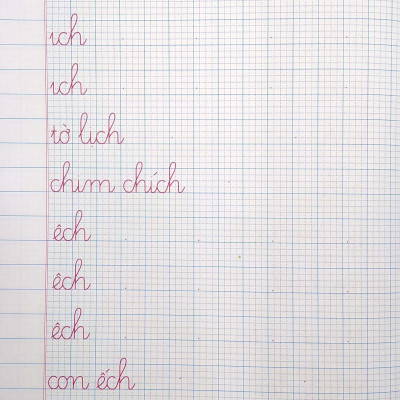 ich
ich
tờ lịch
chim chích
êch
êch
êch
con ếch